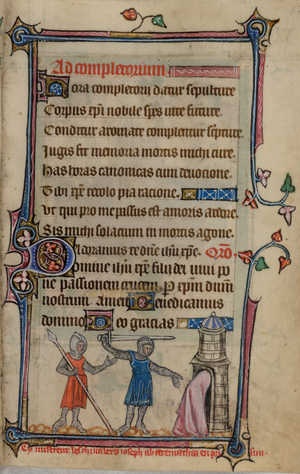 Ad completorium
Hora completorij datur sepulture
Corpus xpi nobile spes uite future.
Conditur aromate complentur scpture
Iugis sit memoria mortis michi cure.
Has horas canonicas cum deuocione.
Tibi xpe recolo pia racione.
Ut qui pro me passus est amoris ardore.
Sis michi solacium in mortis agone.
Adoramus te dne ihu xpe. Oro.
Domine ihu xpe fili dei uiui po
ne passionem crucem. P xpm dnum
nostrum Amen Benedicamus
domino Deo gracias
les chiualers ioseph ab arimathia en